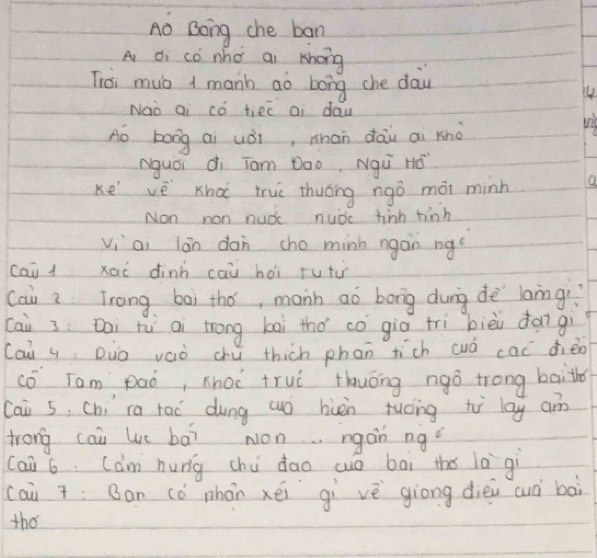 Aỏ Bông che bạn
Ai ơi có nhớ ai không
Trời mưa 1 manh áo bông che đầu
Nào ai có tiếc ai đâu
Áo bông ai ướt, khăn đầu ai khô
Người đi Tam Đảo, Ngũ Hồ
Kẻ về khóc trúc thương ngô một mình
Non non nước nước tình tình
Vì ai lận đận cho mình ngẩn ngơ
Câu 1 xác định câu hỏi tu từ
Câu 2: Trong bài thơ, mảnh áo bông dùng để làm gì?
Câu 3: Đại từ ai trong bài thơ có giá trị biểu đạt gì
Câu 4: Dựa vào chú thích phân tích của các điển
cố Tam Đảo, khóc trúc thương ngô trong bài thơ
Câu 5: Chỉ ra tác dụng của hiện tượng từ láy âm
trong câu lục bát Non ... ngẩn ngơ
Câu 6: Cảm hứng chủ đạo của bài thơ là gì
Câu 7: Bạn có nhận xét gì về giọng điệu của bài
thơ